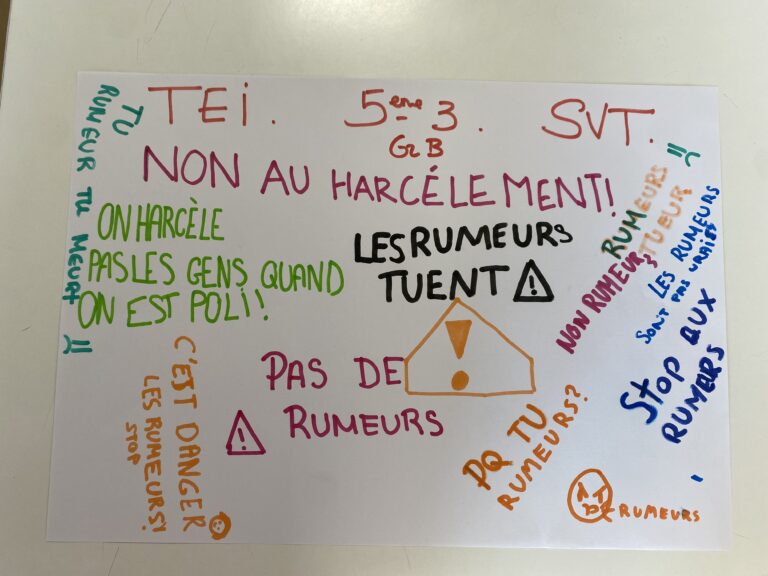 TEI. 5ème 3. SVT.
Gr B
NON AU HARCÉLEMENT!
TU
RUMEUR TU MEURT !!
ON HARCÈLE
PAS LES GENS QUAND
ON EST POLI!
LES RUMEURS
TUENT ⚠
RUMEURS
TUEUR
NON RUMEURS
LES RUMEURS
SONT PAS VRAIES
STOP AUX
RUMEURS
PAS DE
RUMEURS
!
C'EST DANGER
LES RUMEURS!
STOP
PQ TU
RUMEURS?
RUMEURS